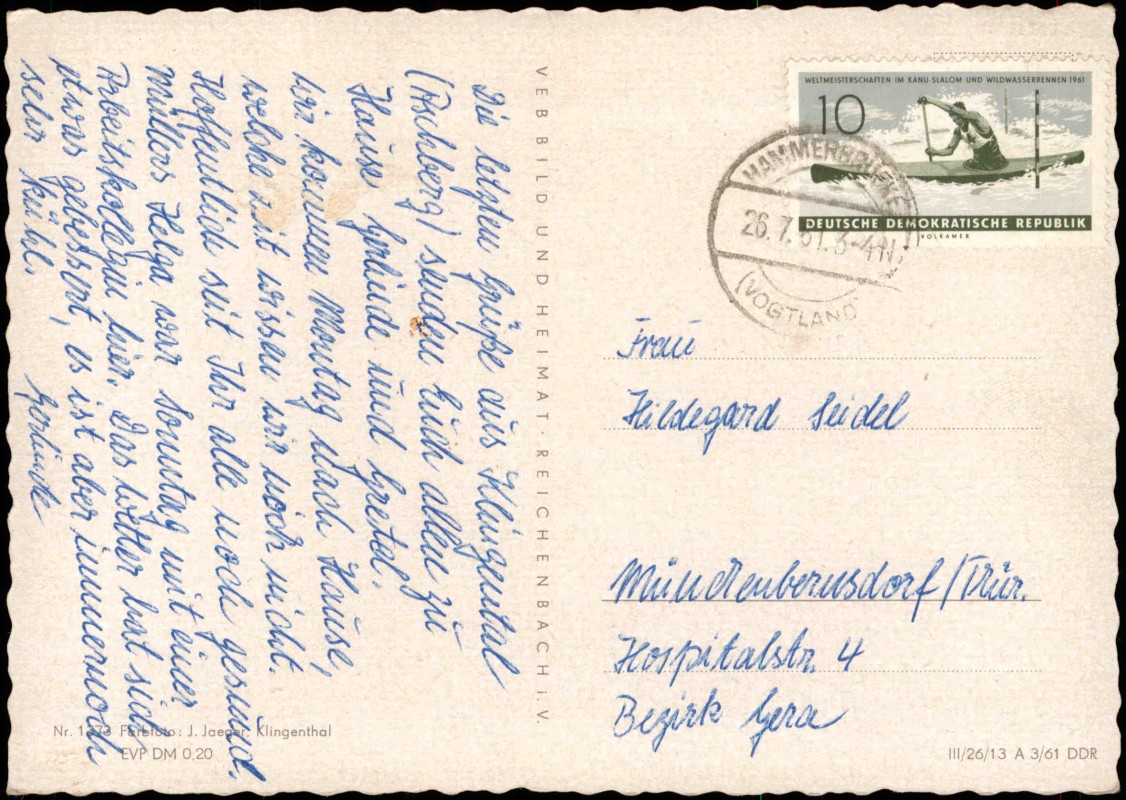 Die letzten Grüße aus Klingental
(Aschberg) senden Euch allen zu
Hause Gerlinde und Gretel.
Wir kommen Montag nach Hause,
welche Zeit wissen wir noch nicht.
Hoffentlich seit Ihr alle noch gesund.
Müllers Helga war Sonntag mit einer
Arbeitskollegin hier. Das Wetter hat sich
etwas gebessert, es ist aber immernoch
sehr kühl.
Gerlinde
VEB BILD UND HEIMAT · REICHENBACH i. V.
WELTMEISTERSCHAFTEN IM KANU-SLALOM UND WILDWASSERRENNEN 1961
10
DEUTSCHE DEMOKRATISCHE REPUBLIK
VOLKAMER
HAMMERBRÜCKE
26.7.61.3-4N.
(VOGTLAND
Frau
Hildegard Seidel
Münchenbernsdorf/Thür.
Hospitalstr. 4
Bezirk Gera
Nr. 1373 Farbfoto: J. Jaeger, Klingenthal
EVP DM 0,20
III/26/13 A 3/61 DDR